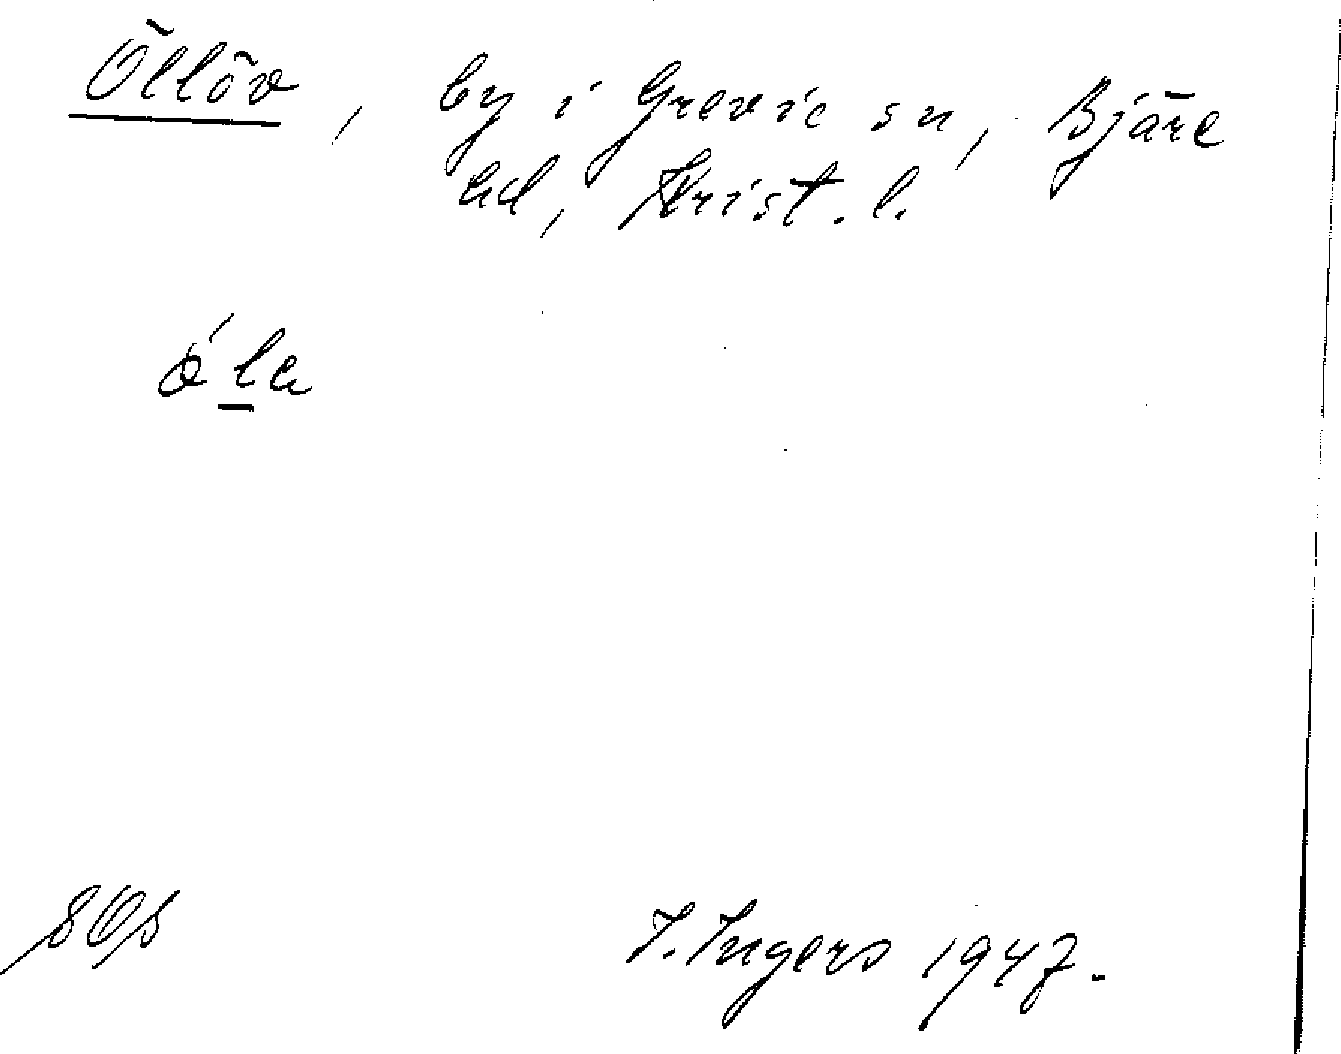 Öllöv, by i Grevie sn, Bjäre
hd, Krist. l.
I. Ingers 1947.